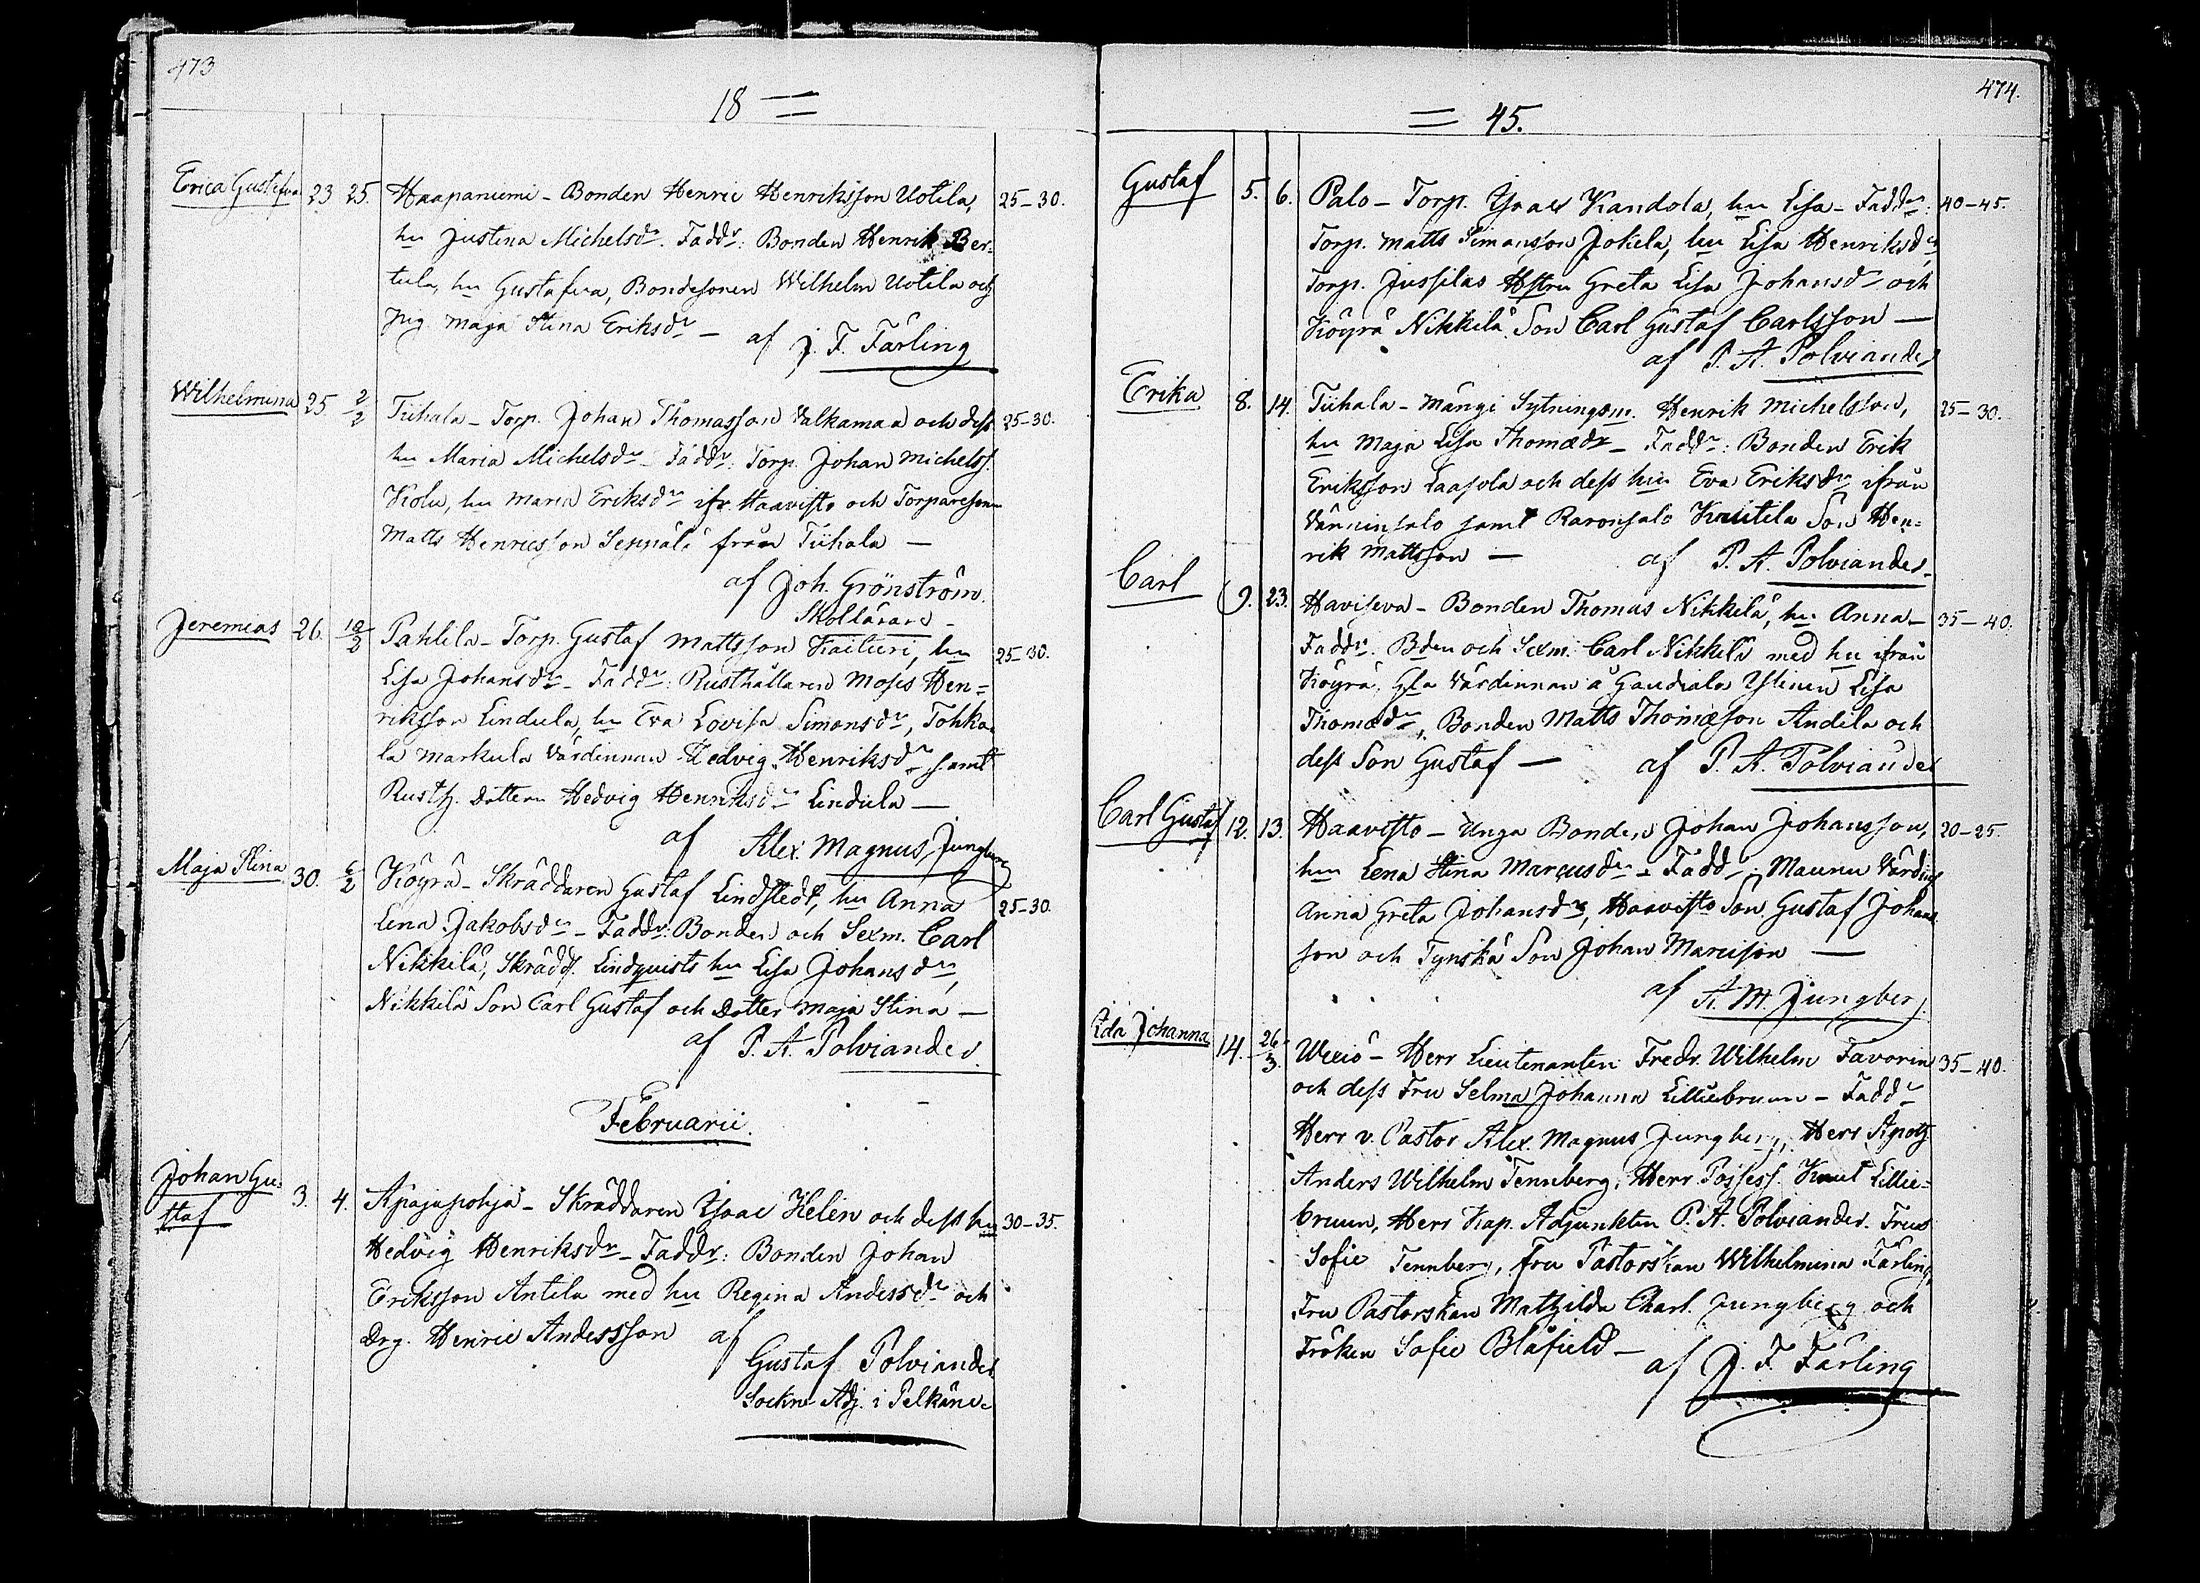 473
18 =
Erica Gustafva 23 25. Haapaniemi - Bonden Henric Henriksson Uotila, 25-30.
hu Justina Michelsdr. Faddr: Bonden Henrik Ber-
tula, hu Gustafva, Bondesonen Wilhelm Uotila och
Pig Maja Stina Eriksdr -
af J. F. Färling
Wilhelmina 25 2/2 Tiihala - Torp. Johan Thomasson Valkamaa och dess 25-30.
hu Maria Michelsdr - Faddr: Torp. Johan Michelss.
hu Maria Eriksdr ifr. Haavisto och Torparesonen
Matts Henricsson Seppälä från Tiihala -
af Joh. Grönström.
Skollärare -
Jeremias 26. 10/2 Pahlila - Torp. Gustaf Mattsson Kaituri, hu 25-30.
Lisa Johansdr - Faddr: Rusthållaren Moses Hen-
riksson Lindula, hu Eva Lovisa Simonsdr, Tohka-
la Markula Värdinnan Hedvig Henriksdr samt
Rusth. dottern Hedvig Henriksdr Lindula -
af Alex. Magnus Jungberg
Maja Stina 30. 6/2 Köyrä - Skräddaren Gustaf Lindstedt, hu Anna 25-30.
Lena Jakobsdr - Faddr: Bonden och Sexm. Carl
Nikkilä, Skrädd. Lindquists hu Lisa Johansdr,
Nikkilä Son Carl Gustaf och Dotter Maja Stina -
af P. A. Polviander.
Februarii.
Johan Gu- 3. 4. Apajapohja - Skräddaren Isaac Helen och dess hu 30-35.
staf
Hedvig Henriksdr - Faddr: Bonden Johan
Eriksson Antila med hu Regina Andersdr och
Drg. Henric Andersson af
Gustaf Polviander
Sockne Adj. i Pelkäne
474.
= 45.
Gustaf 5. 6. Palo - Torp. Isaac Kandola, hu Lisa - Faddr: 40-45.
Torp. Matts Simonsson Jokela, hu Lisa Henriksdr,
Torp. Jussilas Hstru Greta Lisa Johansdr och
Köyrä Nikkilä Son Carl Gustaf Carlsson -
af P. A. Polviander
Erika 8. 14. Tiihala - Mängi Sytningsm. Henrik Michelsson, 25-30.
hu Maja Lisa Thomædr - Faddr: Bonden Erik
Eriksson Laasola och dess hu Eva Eriksdr ifrån
Vänninsalo samt Raronsalo Knutila Son Hen-
rik Mattsson - af P. A. Polviander.
Carl 9. 23. Haviseva - Bonden Thomas Nikkilä, hu Anna - 35-40.
Faddr. Bden och Sexm. Carl Nikkilä med hu ifrån
Köyrä, Gla Värdinnan å Lisa
Thomædr, Bonden Matts Thomæson Andila och
dess Son Gustaf - af P. A. Polviander
Carl Gustaf 12. 13. Haavisto - Unga Bonden Johan Johansson, 20-25.
hu Lena Stina Marcusdr - Faddr: Maunu Värdin
Anna Greta Johansdr, Haavisto Son Gustaf Johans
son och Tynskä Son Johan Marcison -
af A. M. Jungberg.
Ida Johanna 14. 26/3. Wexiö - Herr Lieutenanten Fredr. Wilhelm Favorin 35-40.
och dess Fru Selma Johanna Lilliebruun - Faddr
Herr v. Pastor Alex. Magnus Jungberg, Herr Apoth
Anders Wilhelm Tennberg, Herr Possess. Knut Lillie-
bruun, Herr Kap. Adjunkten P. A. Polviander. Frus
Sofie Tennberg, Fru Pastorskan Wilhelmina Färling,
Fru Pastorskan Mathilda Charl. Jungberg och
Fröken Sofie Blåfield -
af J. F. Färling